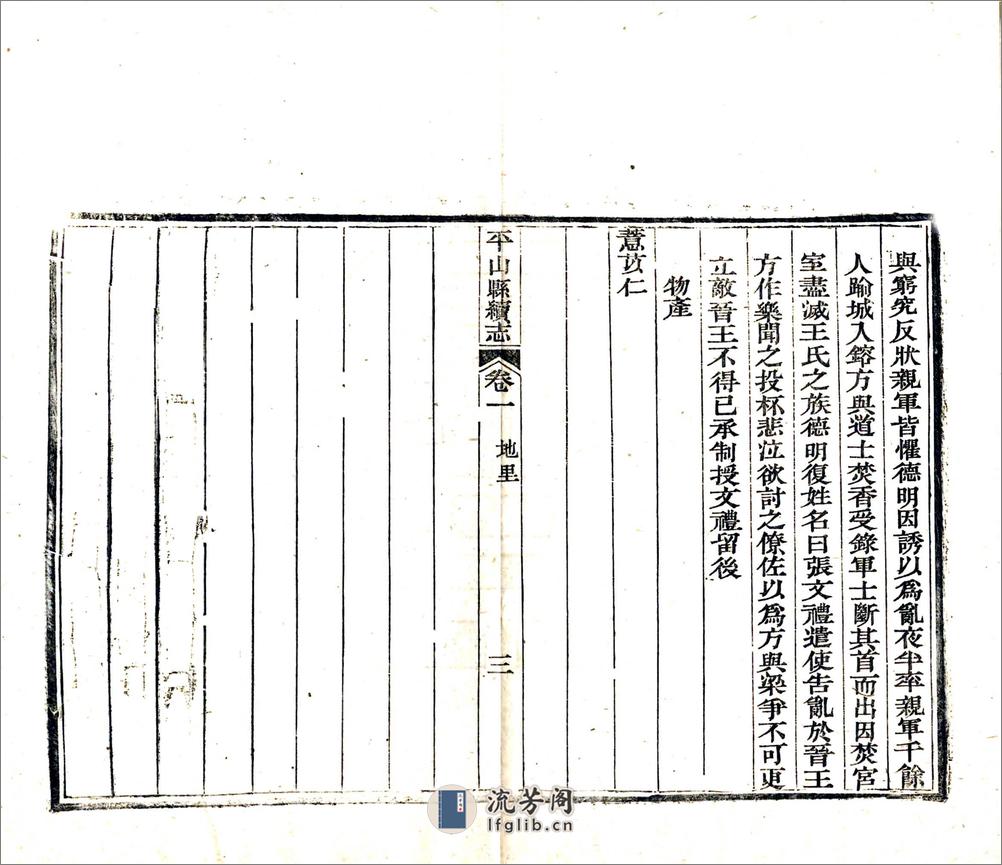 與窮究反狀親軍皆懼德明因誘以爲亂夜半率親軍千餘
人踰城入鎔方與道士焚香受籙軍士斷其首而出因焚宮
室盡滅王氏之族德明復姓名曰張文禮遣使告亂於晉王
方作樂聞之投杯悲泣欲討之僚佐以爲方與梁爭不可更
立敵晉王不得已承制授文禮留後
物產
薏苡仁
平山縣續志 卷一 地里 三
流芳阁
lfglib.cn